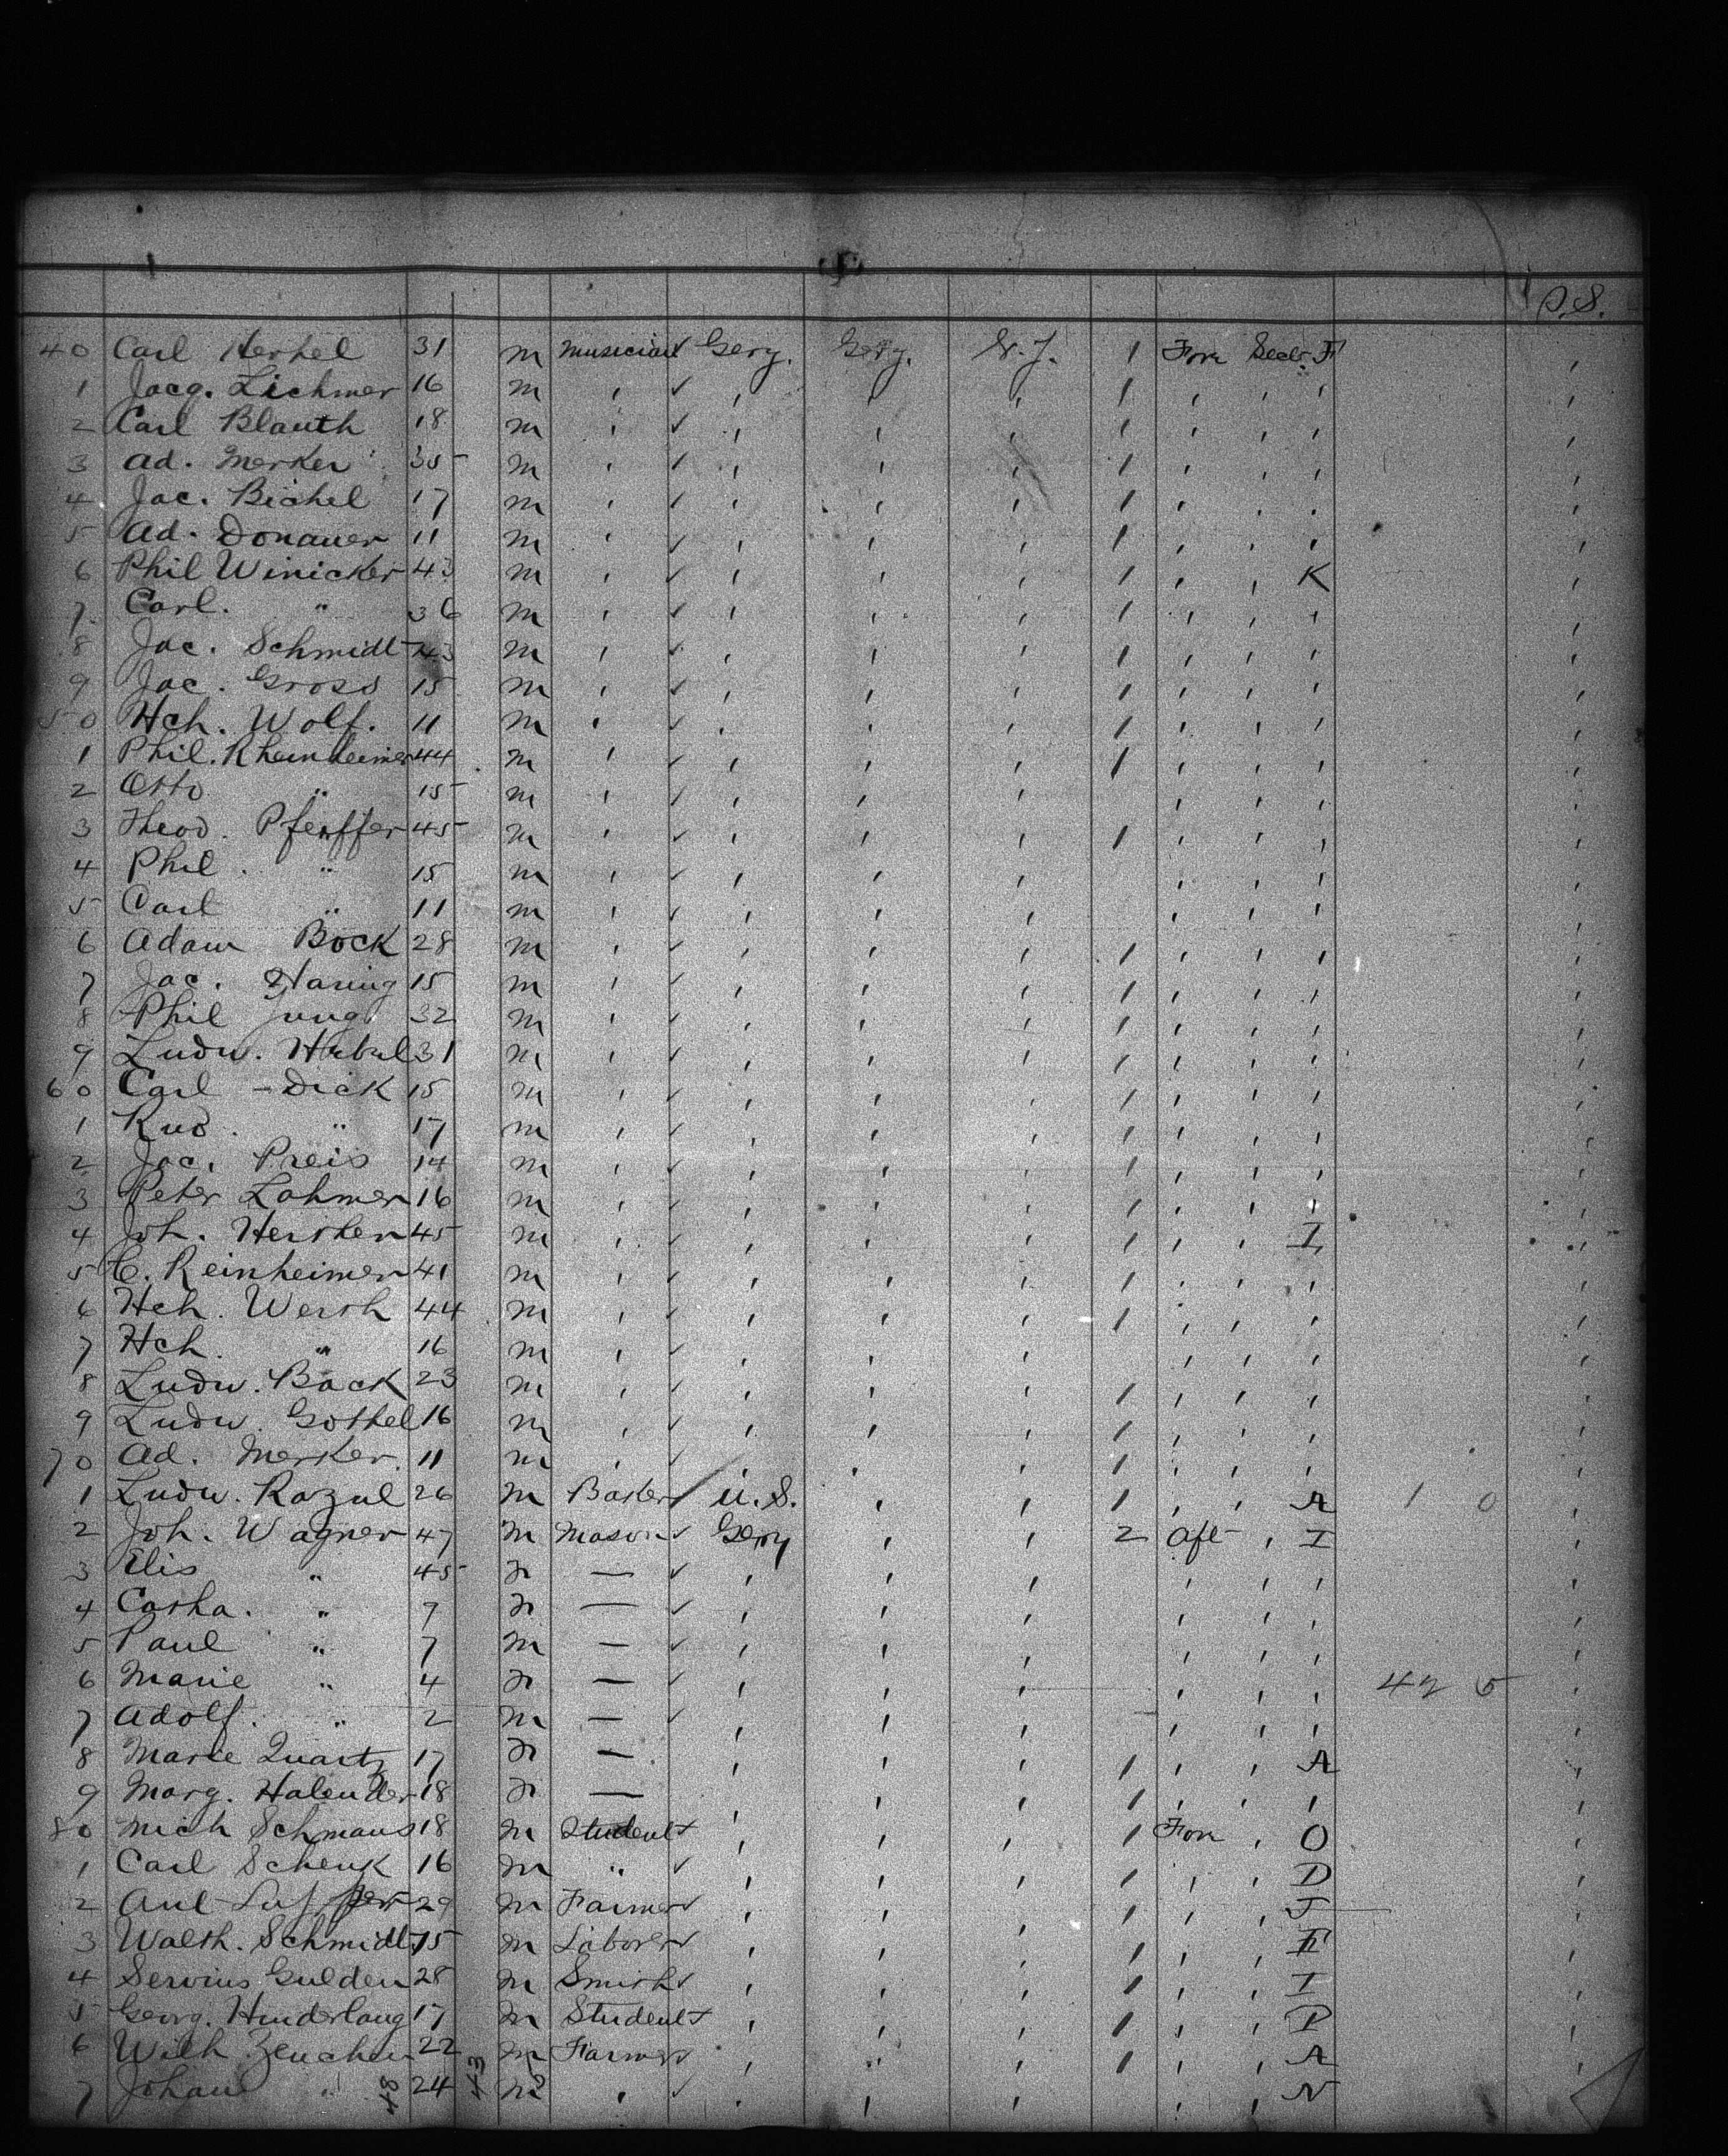 P.S.
40 Carl Herhel 31 m musician Gery. Gery. N.Y. 1 For Secb. F
1 Jacq. Lichmer 16 m , ✓ , , , 1 , , , ,
2 Carl Blauth 18 m , ✓ , , , 1 , , , ,
3 Ad. Merker 35 m , ✓ , , , 1 , , , ,
4 Jac. Bichel 17 m , ✓ , , , 1 , , , ,
5 Ad. Donauer 11 m , ✓ , , , 1 , , , ,
6 Phil Winicker 43 m , ✓ , , , 1 , , K ,
7 Carl. " 36 m , ✓ , , , 1 , , , ,
8 Jac. Schmidt 43 m , ✓ , , , 1 , , , ,
9 Jac. Gross 15 m , ✓ , , , 1 , , , ,
50 Hch. Wolf. 11 m , ✓ , , , 1 , , , ,
1 Phil. Rheinheimer 44 m , ✓ , , , 1 , , , ,
2 Otto " 15 m , ✓ , , , , , , ,
3 Theod. Pfeiffer 45 m , ✓ , , , 1 , , , ,
4 Phil. " 15 m , ✓ , , , , , , ,
5 Carl " 11 m , ✓ , , , , , , ,
6 Adam Bock 28 m , ✓ , , , 1 , , , ,
7 Jac. Haring 15 m , ✓ , , , 1 , , , ,
8 Phil Jung 32 m , ✓ , , , 1 , , , ,
9 Ludw. 31 m , ✓ , , , 1 , , , ,
60 Carl - Dick 15 m , ✓ , , , 1 , , , ,
1 Rud. " 17 m , ✓ , , , 1 , , , ,
2 Jac. Preis 14 m , ✓ , , , 1 , , , ,
3 Peter Lahmer 16 m , ✓ , , , 1 , , , ,
4 Joh. Hersher 45 m , ✓ , , , 1 , , I ,
5 C. Reinheimer 41 m , ✓ , , , 1 , , , ,
6 Hch. Werth 44 m , ✓ , , , 1 , , , ,
7 Hch. " 16 m , ✓ , , , , , , ,
8 Ludw. Back 23 m , ✓ , , , 1 , , , ,
9 Ludw. Gothel 16 m , ✓ , , , 1 , , , ,
70 Ad. Merker. 11 m , ✓ , , , 1 , , , ,
1 Ludw. Razul 26 m Baker ✓ U.S. , , 1 , , A 1 0 ,
2 Joh. Wagner 47 m Mason ✓ Gery , , 2 Aft , I ,
3 Elis " 45 — ✓ , , , , , , ,
4 Catha. " 9 — ✓ , , , , , , ,
5 Paul " 7 m — ✓ , , , , , , ,
6 Marie " 4 — ✓ , , , , , , 42 5 ,
7 Adolf. " 2 m — ✓ , , , , , , ,
8 Marie Quartz 17 — , , , 1 , , A ,
9 Marg. Halender 18 — , , , 1 , , , ,
80 Nich Schmaus 18 m Student , , , 1 For , O ,
1 Carl Schenk 16 m " ✓ , , , 1 , , D ,
2 29 m Farmer , , , 1 , , J ,
3 Walth. Schmidt 15 m Laborer , , , 1 , , F ,
4 Servius Gulden 28 m Smith ✓ , , , 1 , , I ,
5 Georg. Hinderlang 17 m Student , , , 1 , , P ,
6 Wilh. 22 m Farmer , " , 1 , , A ,
7 Johann " 48 24 43 m , ✓ , , , , , N ,